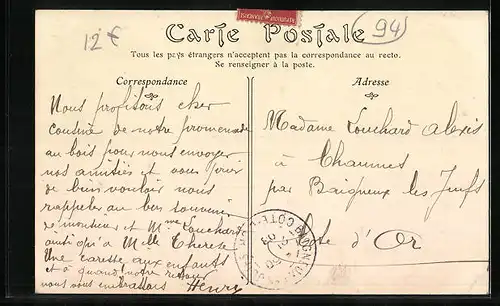 12 €
94
Carte Postale
Tous les pays étrangers n'acceptent pas la correspondance au recto.
Se renseigner à la poste.
Correspondance
Nous profitons cher
cousine de notre promenade
au bois pour nous envoyer
nos amitiés et vous prier
de bien vouloir nous
rappeler au bon souvenir
de monsieur et Mme Louchard
ainsi qu'a Melle Therese
Une caresse aux enfants
et à quand notre retour
nous vous embrassons Henry
Adresse
Madame Louchard Alexis
à Chaumes
par Baigneux les Juifs
Côte d'Or
BAIGNEUX
CÔTE-D'OR